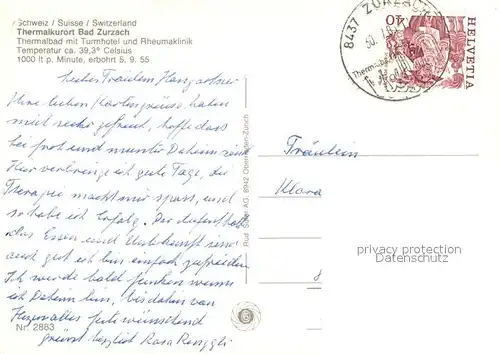 Schweiz / Suisse / Switzerland
Thermalkurort Bad Zurzach
Thermalbad mit Turmhotel und Rheumaklinik
Temperatur ca. 39,3° Celsius
1000 lt p. Minute, erbohrt 5. 9. 55
8437 ZURZACH
HELVETIA
40
Liebes Fräulein
Ihre lieben Kartengrüsse haben
mich sehr gefreut, hoffe dass
Sie froh und munter Daheim sind
Hier verbringe ich gute Tage, die
Therapie macht mir spass, und
so habe ich Erfolg. Der Aufenthalt
das Essen und Unterkunft sind
auch gut ich bin einfach zufrieden
Ich werde bald funken wenn
ich Daheim bin, bis dahin von
Herzen alles gute wünschend
grüsst herzlich Rosa Renggli
Nr. 2883
Rud. Suter AG, 8942 Oberrieden-Zürich
Fräulein
Klara
8
privacy protection
WWW.ANSICHTSKARTEN-LEXIKON.DE